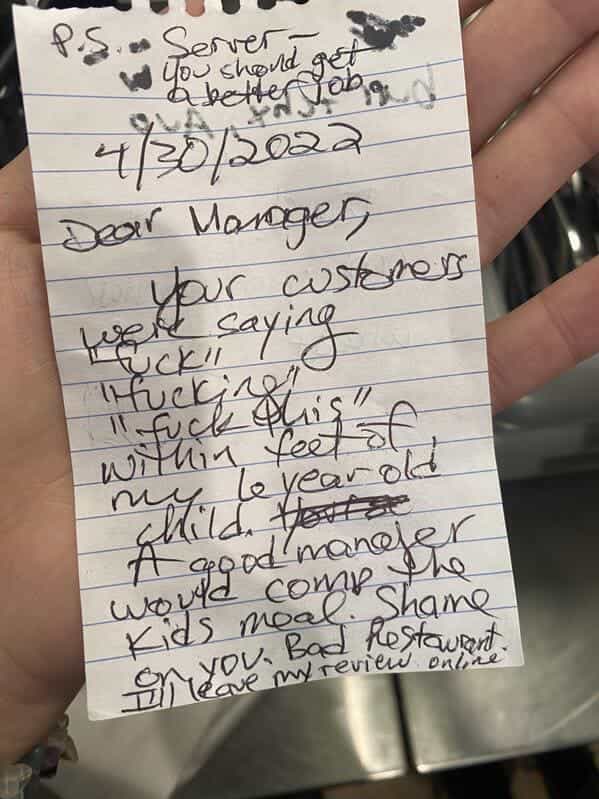 P.S. - Server -
you should get
a better job.
4/30/2022
Dear Manager,
your customers
were saying
"fuck"
"fucking"
"fuck this"
within feet of
my 6 year old
child.
A good manager
would comp the
Kids meal. Shame
on you. Bad Restaurant.
I'll leave my review online